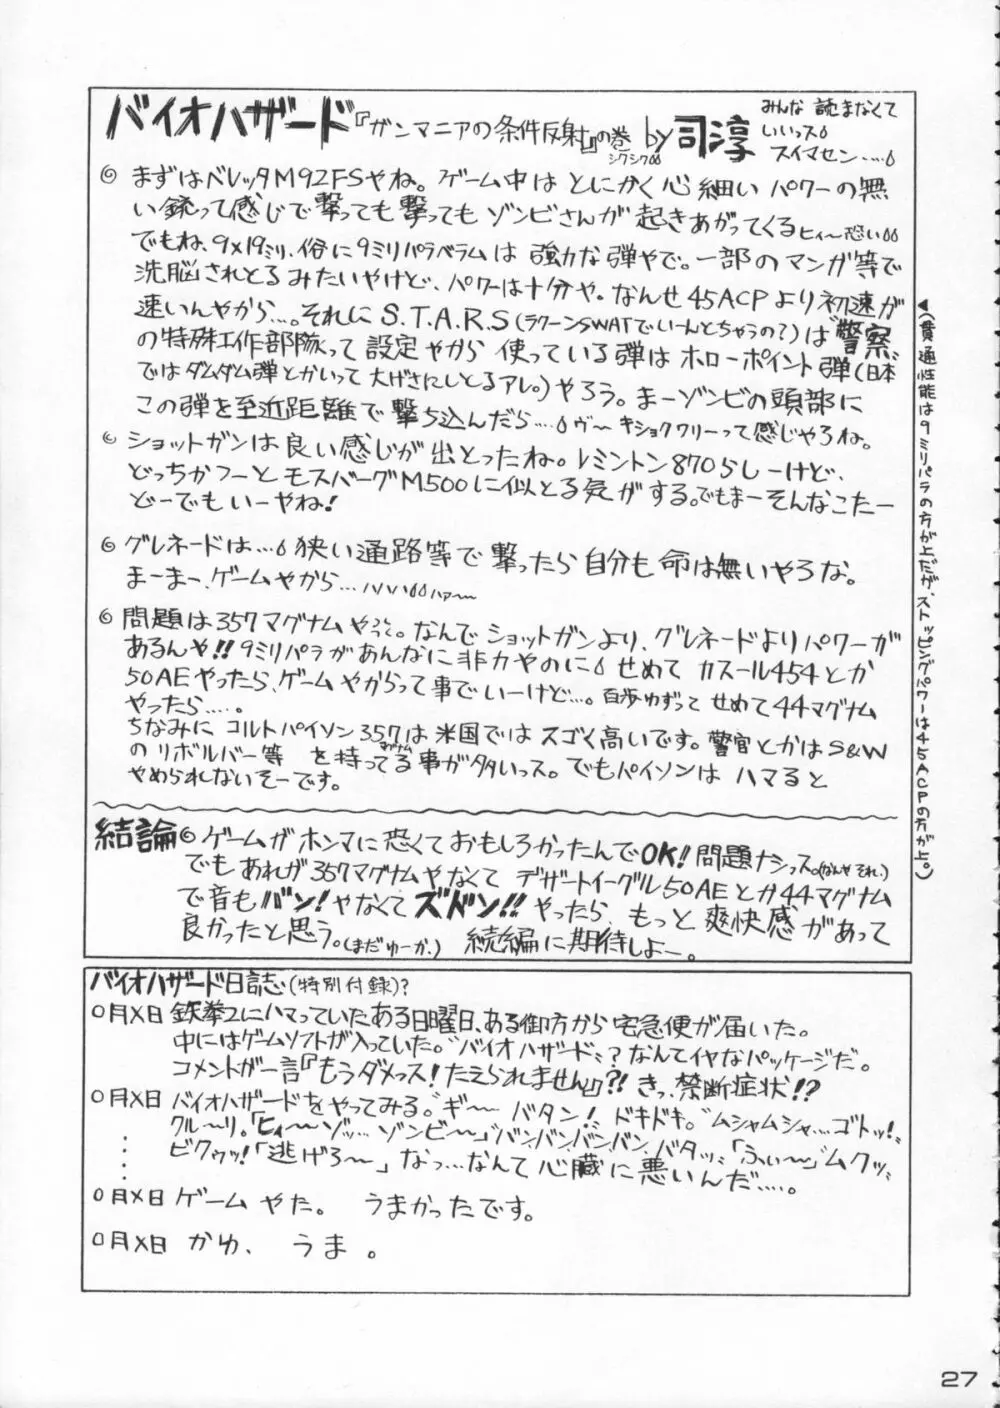 バイオハザード『ガンマニアの条件反射』の巻 by 司淳
シクシク
みんな 読まなくて
いいっス
スイマセン....
まずはベレッタM92FSやね。ゲーム中は とにかく心細い パワーの無
い銃って感じで撃っても撃っても ゾンビさんが 起きあがってくるヒィ〜恐い
でもね、9×19ミリ、俗に9ミリパラベラムは 強力な弾やで。一部のマンガ等で
洗脳されとるみたいやけど、パワーは十分や。なんせ45ACPより初速が
速いんやから...。それにS.T.A.R.S(ラクーンSWATでいーんとちゃうの?)は"警察"
の特殊工作部隊って 設定やから 使っている弾は ホローポイント弾(日本
ではダムダム弾とかいって 大げさにしとるアレ。)やろう。まーゾンビの頭部に
この弾を至近距離で撃ち込んだら.... ヴ〜 キショクワリーって感じやろね。
ショットガンは良い感じが出とったね。レミントン870らしーけど、
どっちかつーと モスバーグM500に似とる気がする。でもまーそんなこたー
どーでもいーやね!
グレネードは... 狭い通路等で撃ったら自分も命は無いやろな。
まーまー、ゲームやから... ハァ〜
問題は357マグナムやっつうて。なんでショットガンより、グレネードよりパワーが
あるんや!! 9ミリパラがあんなに非力やのに せめて カスール454とか
50AEやったら、ゲームやからって事でいーけど...。百歩ゆずって せめて44マグナム
やったら....。
ちなみに コルトパイソン357は米国ではスゴく高いです。警官とかはS&W
のリボルバー等 を持ってる事が多いっス。でもパイソンは ハマると
やめられないそーです。
◀(貫通性能は9ミリパラの方が上だが、ストッピングパワーは45ACPの方が上。)
結論 ゲームがホンマに恐くておもしろかったんでOK! 問題ナシっス。(なんやそれ。)
でも あれが357マグナムやなくて デザートイーグル50AEとか44マグナム
で音もバン!やなくてズドン!!やったら、もっと爽快感があって
良かったと思う。(まだゆーか。) 続編に期待しよー。
バイオハザード日誌(特別付録)?
0月X日 鉄拳2にハマっていたある日曜日、ある御方から宅急便が届いた。
中にはゲームソフトが入っていた。"バイオハザード"? なんてイヤなパッケージだ。
コメントが一言『もうダメっス!たえられません』?! きっ、禁断症状!?
0月X日 バイオハザードをやってみる。"ギ〜 バタン!"、ドキドキ。"ムシャムシャ...ゴトッ!"
クル〜リ。「ヒィ〜 ゾッ... ゾンビ〜」"バンバンバンバン、バタッ"「ふぃ〜」"ムクッ"
ビクゥッ!「逃げろ〜」 なっ...なんて 心臓に悪いんだ....。
0月X日 ゲーム やた。 うまかったです。
0月X日 かゆ、 うま 。
27